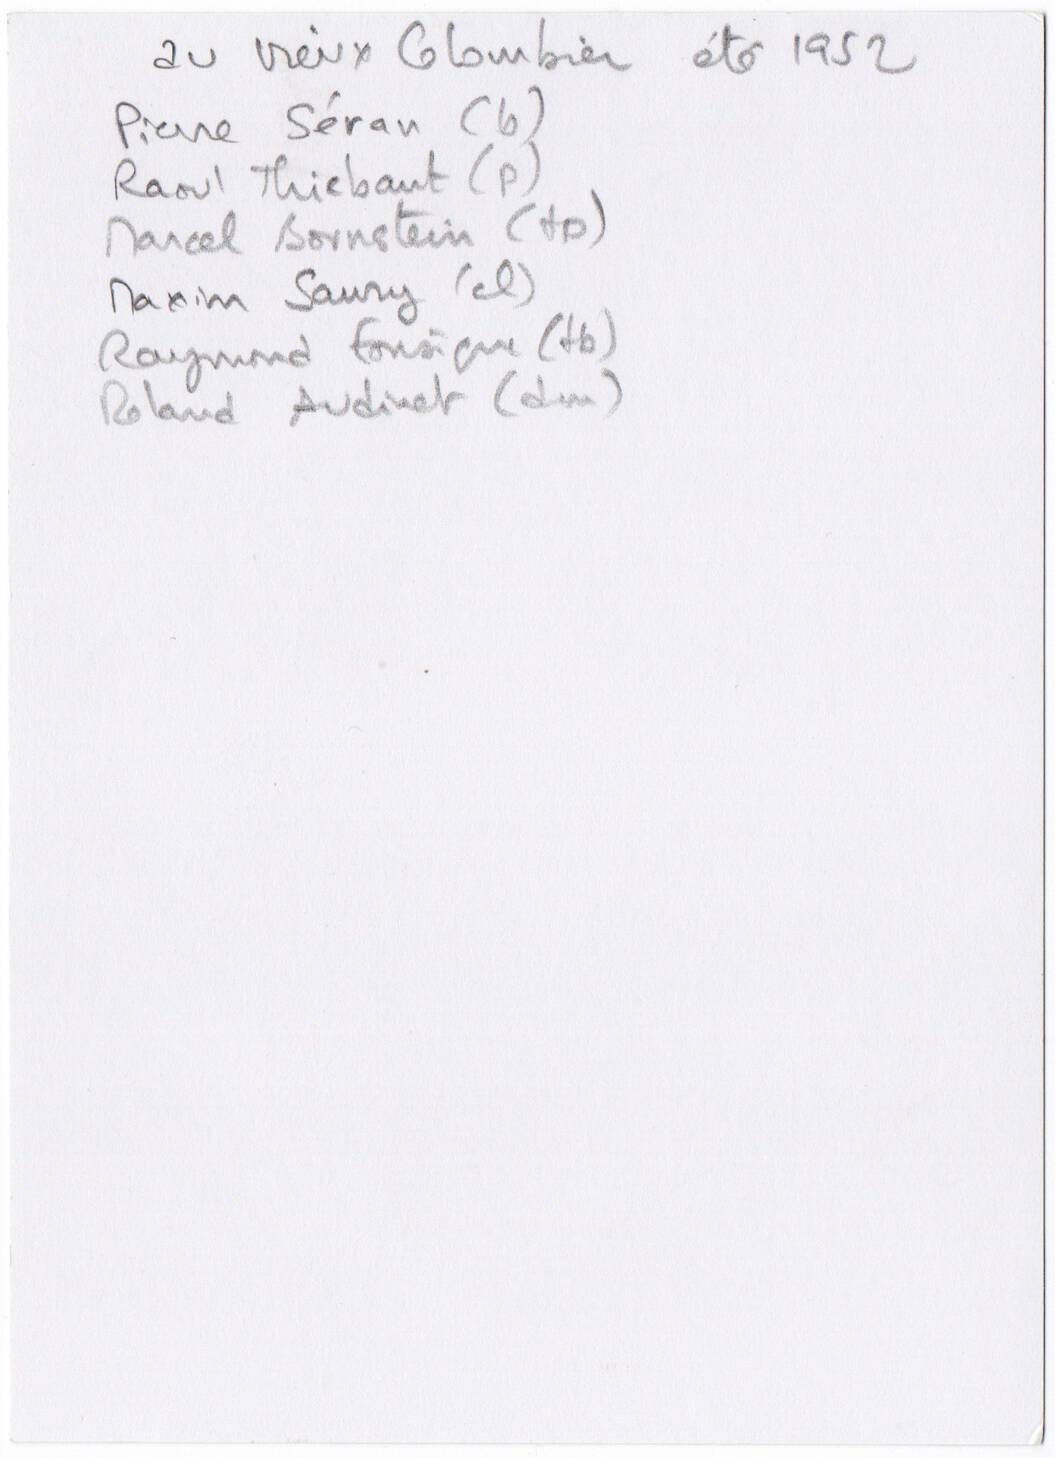 au vieux Colombier été 1952
Pierre Séran (b)
Raoul Thiebaut (p)
Marcel Bornstein (tp)
Maxim Saury (cl)
Raymond Fonsèque (tb)
Roland Audinet (dm)